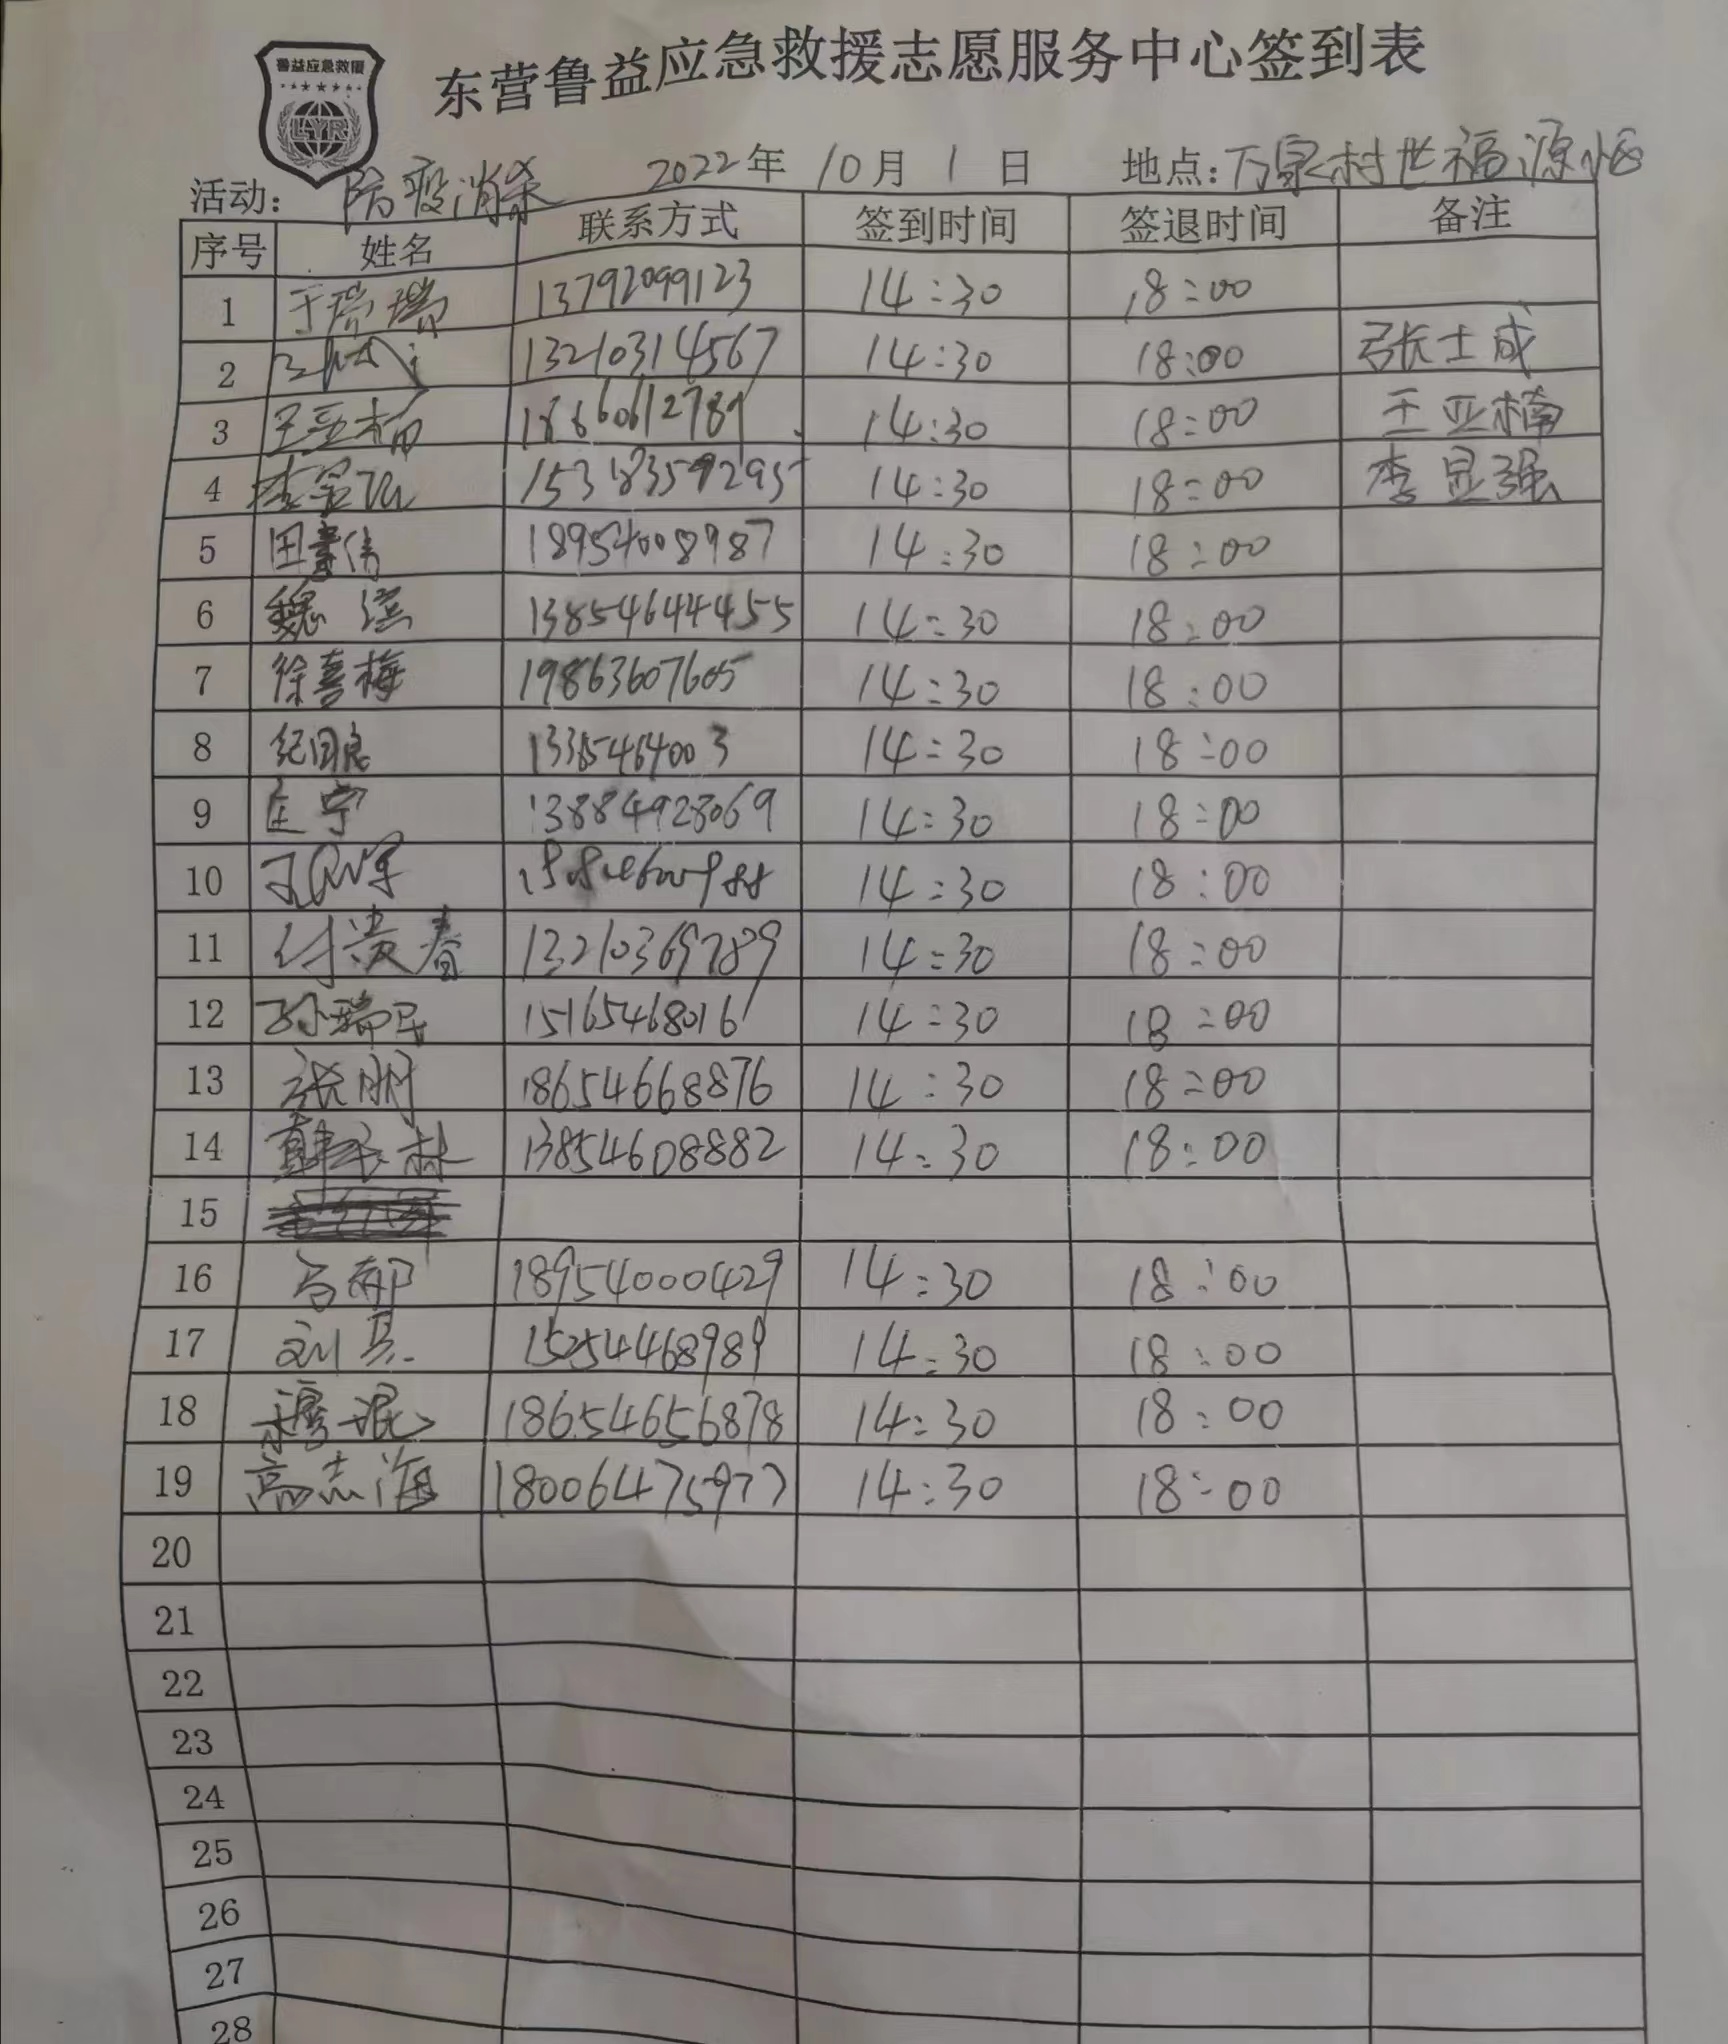 鲁益应急救援
LYR
东营鲁益应急救援志愿服务中心签到表
活动: 防疫消杀 2022年 10月 1日 地点:万泉村世福源小区
序号 姓名 联系方式 签到时间 签退时间 备注
1 于瑞瑞 13792099123 14:30 18:00
2 13210314567 14:30 18:00 张士成
3 王亚楠 18660612789 14:30 18:00 王亚楠
4 李显强 14:30 18:00 李显强
5 18954008987 14:30 18:00
6 魏滨 13854644455 14:30 18:00
7 徐喜梅 19863607605 14:30 18:00
8 纪国良 14:30 18:00
9 匡宁 13884928069 14:30 18:00
10 14:30 18:00
11 付贵春 13210369789 14:30 18:00
12 孙瑞民 15165468016 14:30 18:00
13 张朋 18654668876 14:30 18:00
14 13854608882 14:30 18:00
15
16 18954000429 14:30 18:00
17 15254468989 14:30 18:00
18 穆琨 18654656878 14:30 18:00
19 高志海 18006475977 14:30 18:00
20
21
22
23
24
25
26
27
28